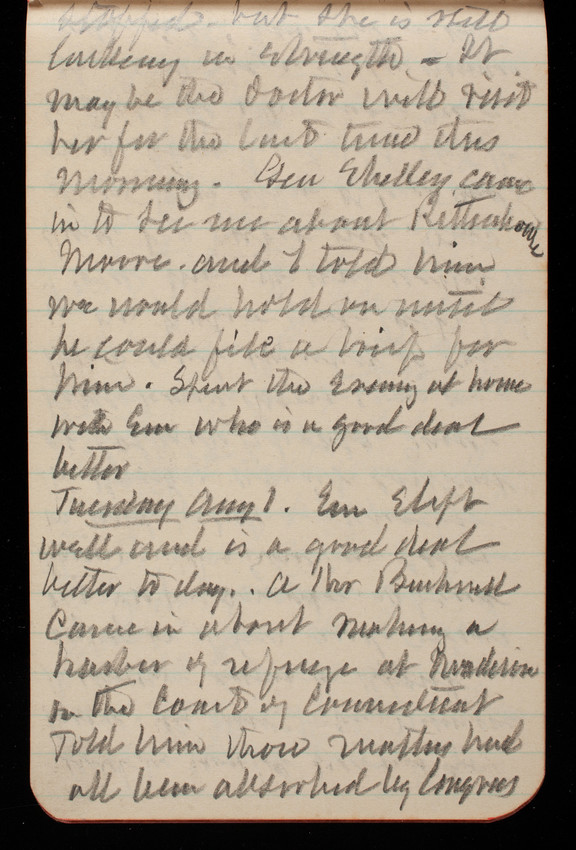 but she is still
lacking in strength - It
may be the Doctor will visit
her for the last time this
morning. Gen Shelley came
in to see me about Rittenhouse
Moore. and I told him
we would hold on until
he could file a brief for
him. Spent the Evening at home
with Em who is a good deal
better
Tuesday Aug 1. Em Slept
well and is a good deal
better to day. A Mr Bushnell
Came in about making a
harbor of refuge at
on the Coast of Connecticut
Told him those matters had
all been absorbed by Congress